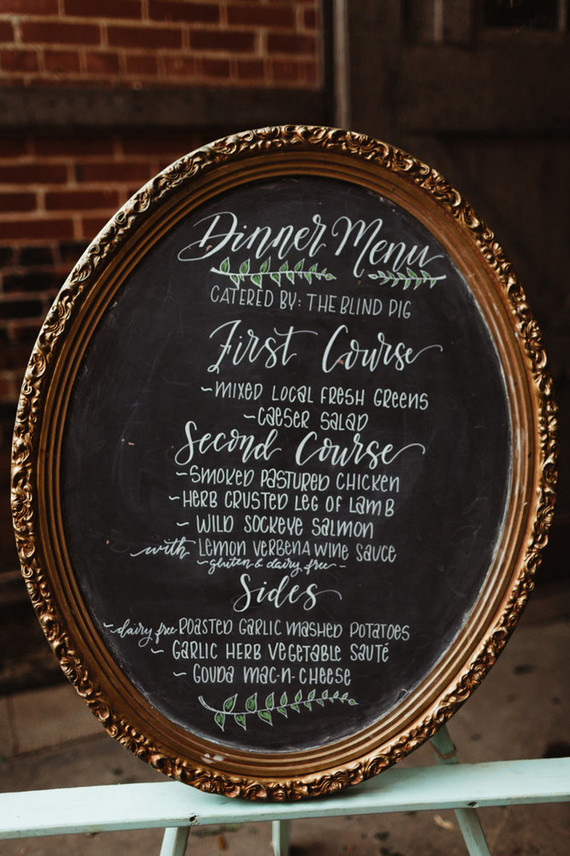 Dinner Menu
CATERED BY: THE BLIND PIG
First Course
~MIXED LOCAL FRESH GREENS
~CAESER SALAD
Second Course
~SMOKED PASTURED CHICKEN
~HERB CRUSTED LEG OF LAMB
~WILD SOCKEYE SALMON
with LEMON VERBENA WINE SAUCE
~gluten & dairy free~
Sides
~dairy free ROASTED GARLIC MASHED POTATOES
~GARLIC HERB VEGETABLE SAUTÉ
~GOUDA MAC-N-CHEESE